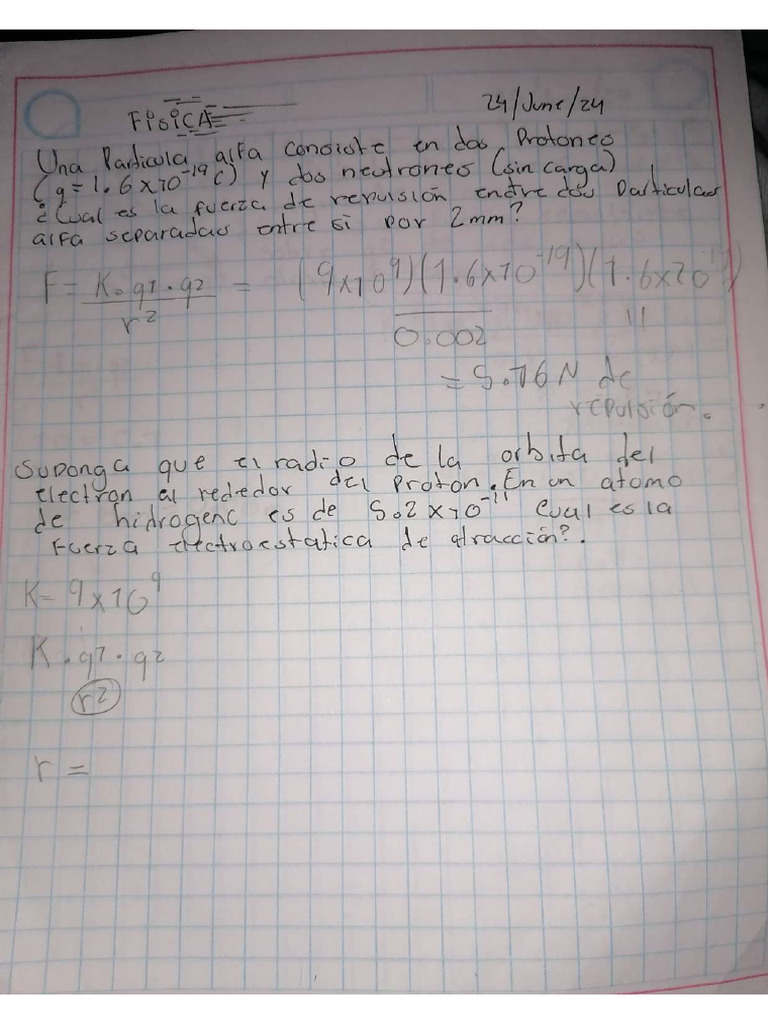 FISICA
24/June/24
Una Particula alfa consiste en dos Protones
(q=1.6x10^-19 C) y dos neutrones (sin carga)
¿Cual es la fuerza de repulsión entre dos particulas
alfa separadas entre si por 2mm?
F = K.q1.q2 / r² = (9x10^9)(1.6x10^-19)(1.6x10^-19) / 0.002
= 5.76 N de
repulsión.
Suponga que el radio de la orbita del
electron al rededor del proton. En un atomo
de hidrogeno es de 5.2x10^-11 Cual es la
fuerza electroestatica de atracción?.
K= 9x10^9
K.q1.q2
r²
r =